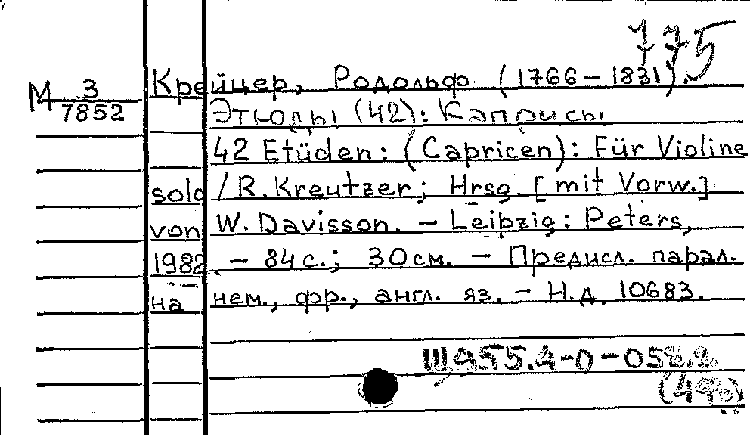 775
М 3/7852
Крейцер, Родольф (1766-1831).
Этюды (42): Каприсы
42 Etüden: (Capricen): Für Violine
solo / R. Kreutzer; Hrsg. [mit Vorw.]
von W. Davisson. - Leipzig: Peters,
1982. - 84 с.; 30 см. - Предисл. парал.
на нем., фр., англ. яз. - Н.д. 10683.